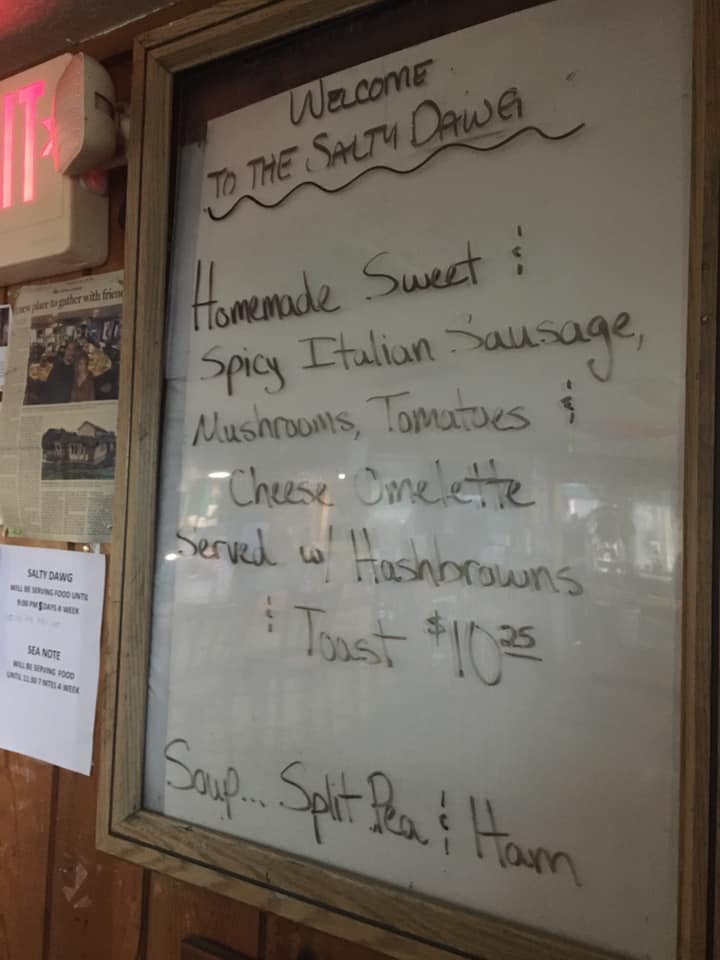 WELCOME
TO THE SALTY DAWG
Homemade Sweet &
Spicy Italian Sausage,
Mushrooms, Tomatoes &
Cheese Omelette
Served w/ Hashbrowns
& Toast $10 25
Soup... Split Pea & Ham
IT
new place to gather with friend
SALTY DAWG
WILL BE SERVING FOOD UNTIL
9:00 PM 5 DAYS A WEEK
SEA NOTE
WILL BE SERVING FOOD
UNTIL 11:30 7 NITES A WEEK